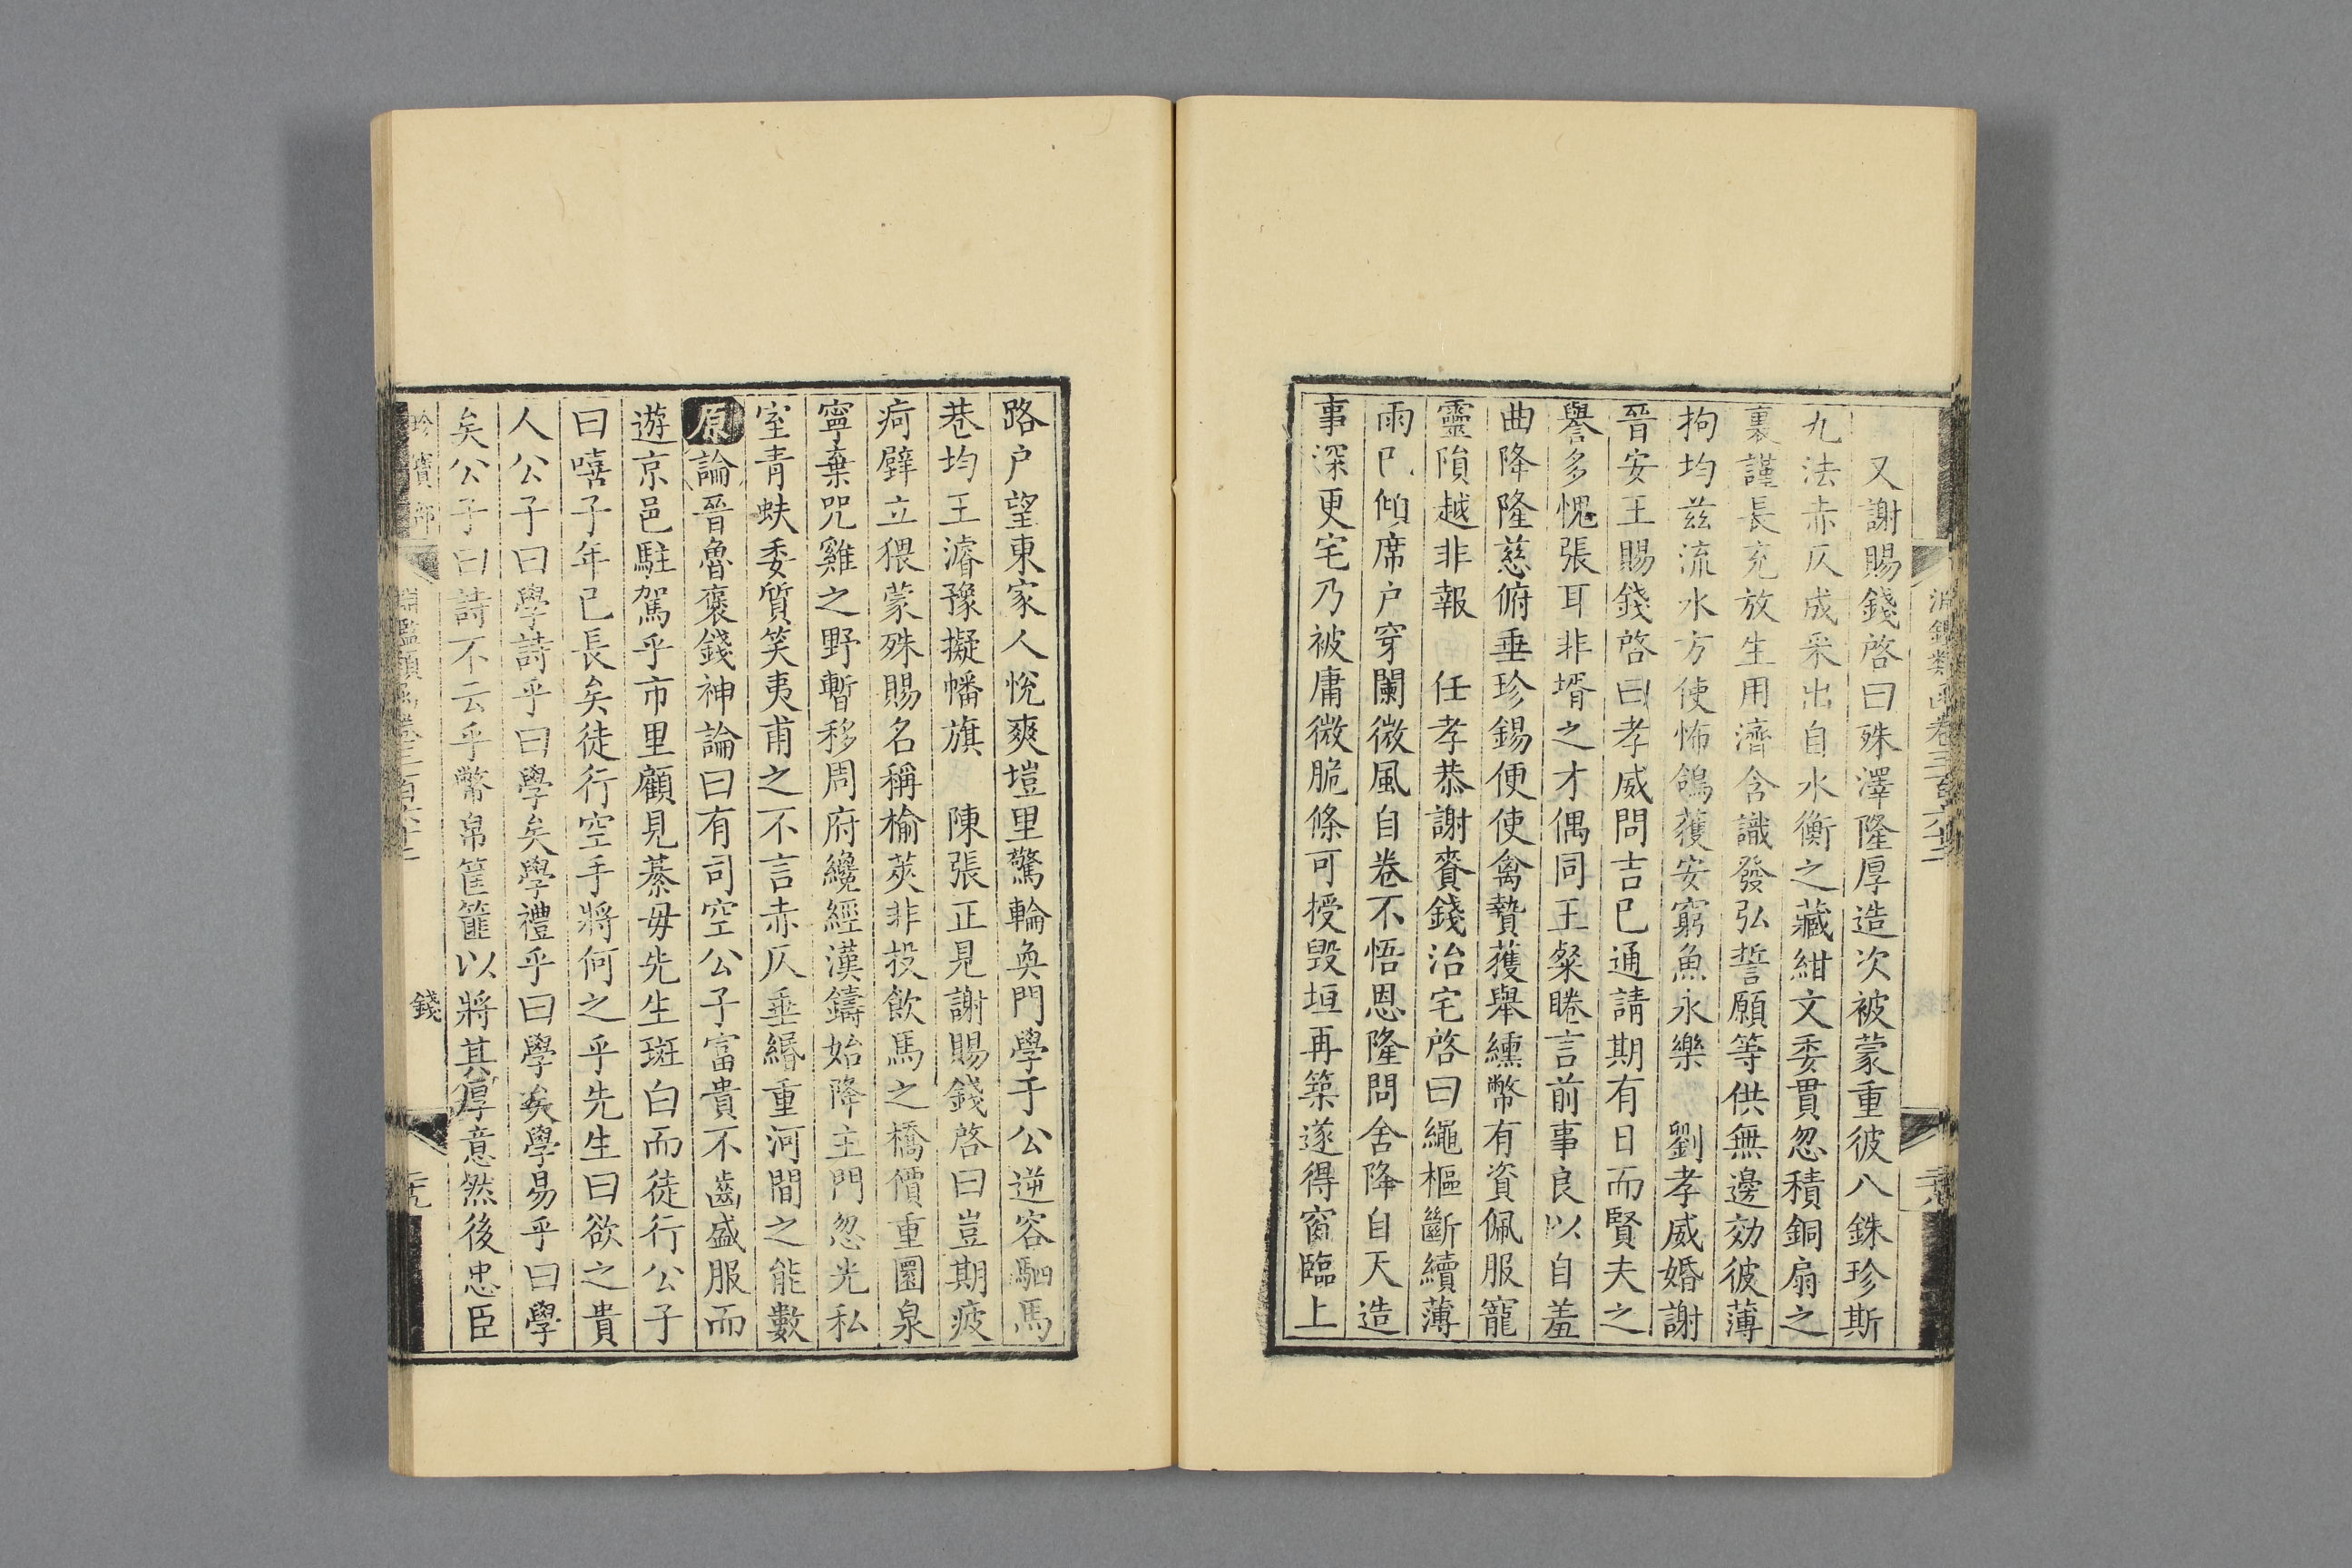 又謝賜錢啓曰殊澤隆厚造次被蒙重彼八銖珍斯
九法赤仄成采出自水衡之藏紺文委貫忽積銅扇之
裏謹長充放生用濟含識發弘誓願等供無邊効彼薄
拘均兹流水方使怖鴿獲安窮魚永樂 劉孝威婚謝
晉安王賜錢啓曰孝威問吉已通請期有日而賢夫之
譽多愧張耳非壻之才偶同王粲睠言前事良以自羞
曲降隆慈俯垂珍錫便使禽贄獲舉纁幣有資佩服寵
靈隕越非報 任孝恭謝賚錢治宅啓曰繩樞斷續薄
雨已傾席户穿闌微風自卷不悟恩隆問舍降自天造
事深更宅乃被庸微脆條可授毁垣再築遂得窗臨上
路户望東家人悅爽塏里驚輪奐門學于公逆容駟馬
巷均王濬豫擬幡旗 陳張正見謝賜錢啓曰豈期疲
痾躃立猥蒙殊賜名稱榆莢非投飲馬之橋價重圜泉
寧棄咒雞之野暫移周府纔經漢鑄始降主門忽光私
室青蚨委質笑夷甫之不言赤仄垂緡重河間之能數
原論晉魯褒錢神論曰有司空公子富貴不齒盛服而
遊京邑駐駕乎市里顧見綦毋先生斑白而徒行公子
曰嘻子年已長矣徒行空手將何之乎先生曰欲之貴
人公子曰學詩乎曰學矣學禮乎曰學矣學易乎曰學
矣公子曰詩不云乎幣帛筐篚以將其厚意然後忠臣
珍寶部 淵鑑類函卷三百六十二 錢